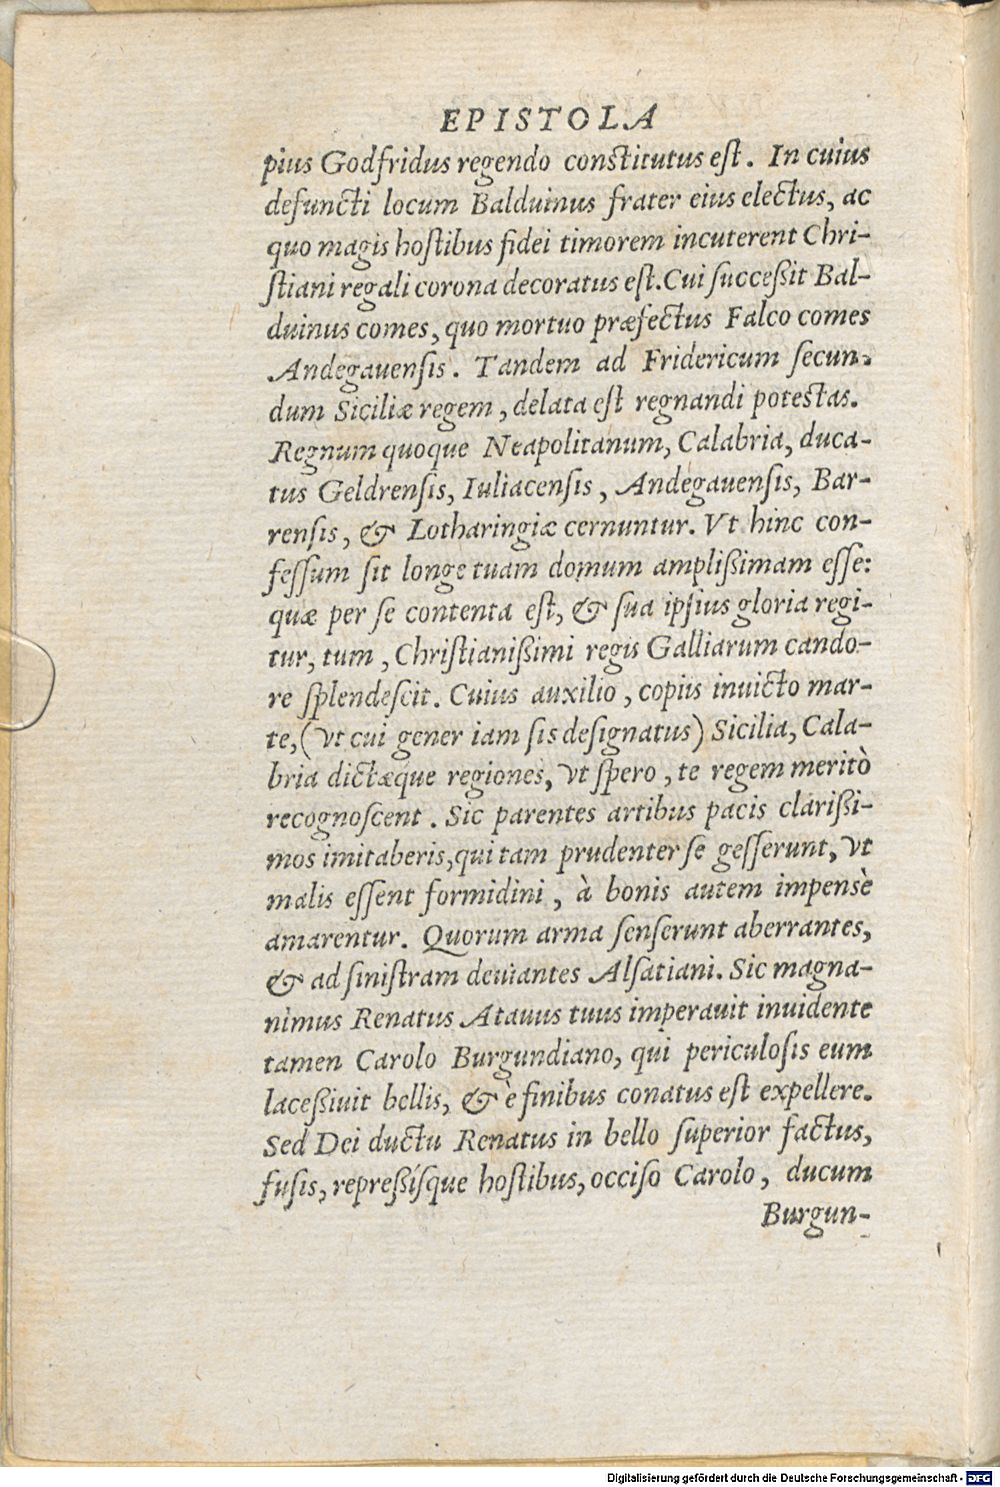 EPISTOLA
pius Godfridus regendo constitutus est. In cuius
defuncti locum Balduinus frater eius electus, ac
quo magis hostibus fidei timorem incuterent Chri-
stiani regali corona decoratus est. Cui succeßit Bal-
duinus comes, quo mortuo præfectus Falco comes
Andegauensis. Tandem ad Fridericum secun-
dum Siciliæ regem, delata est regnandi potestas.
Regnum quoque Neapolitanum, Calabria, duca-
tus Geldrensis, Iuliacensis, Andegauensis, Bar-
rensis, & Lotharingiæ cernuntur. Vt hinc con-
fessum sit longe tuam domum amplißimam esse:
quæ per se contenta est, & sua ipsius gloria regi-
tur, tum, Christianißimi regis Galliarum cando-
re splendescit. Cuius auxilio, copiis inuicto mar-
te, (vt cui gener iam sis designatus) Sicilia, Cala-
bria dictæque regiones, vt spero, te regem meritò
recognoscent. Sic parentes artibus pacis clarißi-
mos imitaberis, qui tam prudenter se gesserunt, vt
malis essent formidini, à bonis autem impensè
amarentur. Quorum arma senserunt aberrantes,
& ad sinistram deuiantes Alsatiani. Sic magna-
nimus Renatus Atauus tuus imperauit inuidente
tamen Carolo Burgundiano, qui periculosis eum
laceßiuit bellis, & è finibus conatus est expellere.
Sed Dei ductu Renatus in bello superior factus,
fusis, repreßísque hostibus, occiso Carolo, ducum
Burgun-
Digitalisierung gefördert durch die Deutsche Forschungsgemeinschaft - DFG